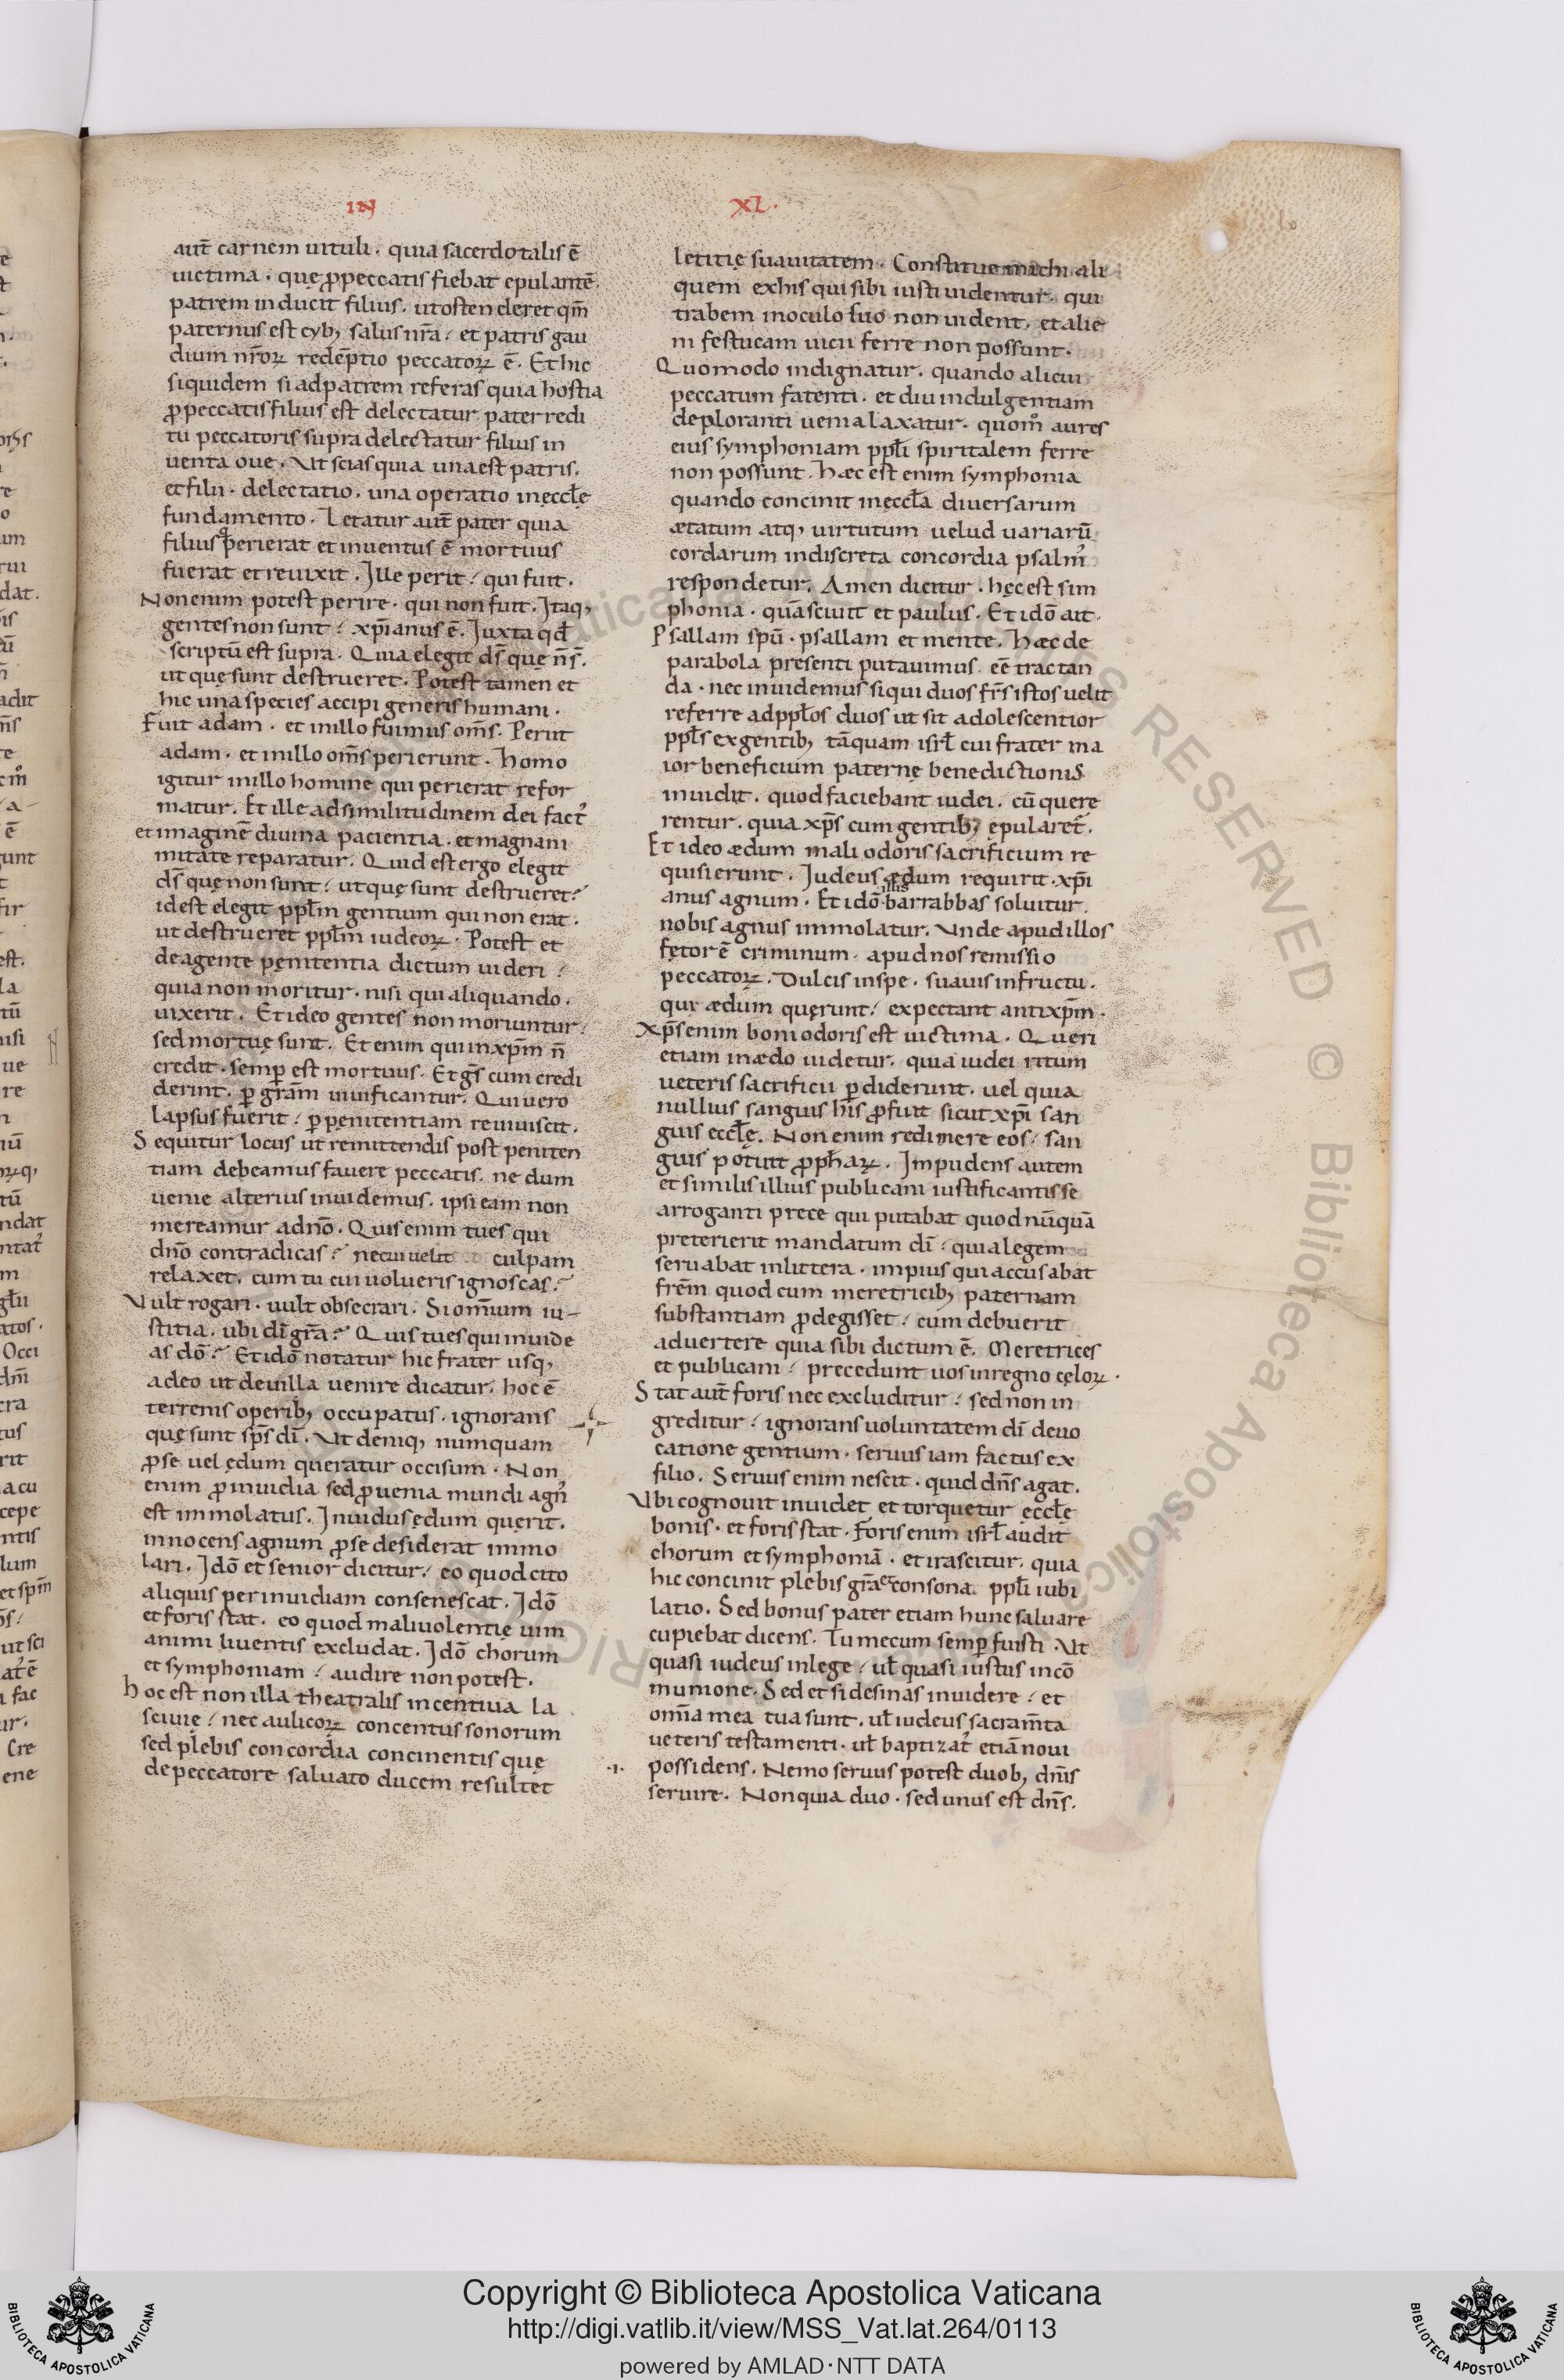 IN
XL.
aut̄ carnem uituli. quia sacerdotalis ē
uictima. quę ꝓpeccatis fiebat epulantē.
patrem inducit filius. utostenderet qm̄
paternus est cyb; salus nr̄a. et patris gau
dium nr̄oꝝ redēptio peccatoꝝ ē. Et hic
siquidem si adpatrem referas quia hostia
ꝓpeccatis filius est delectatur pater redi
tu peccatoris supra delectatur filius in
uenta oue. Ut scias quia una est patris.
et filii. delectatio. una operatio inęccłę
fundamento. Letatur aut̄ pater quia
filius perierat et inuentus ē mortuus
fuerat et reuixit. Ille perit qui fuit.
Non enim potest perire. qui non fuit. Itaq;
gentes non sunt xp̄ianus ē. Juxta qd̄
scriptū est supra. Quia elegit ds̄ quę ns̄.
ut quę sunt destrueret. Potest tamen et
hic una species accipi generis humani.
Fuit adam. et inillo fuimus om̄s. Periit
adam. et inillo om̄s perierunt. Homo
igitur inillo homine qui perierat refor
matur. Et ille adsimilitudinem dei fact᾽
et imaginē diuina pacientia. et magnani
mitate reparatur. Quid est ergo elegit
ds̄ quę non sunt ut quę sunt destrueret?
idest elegit ppłm gentium qui non erat.
ut destrueret ppłm iudeoꝝ. Potest et
deagente pęnitentia dictum uideri
quia non moritur. nisi qui aliquando.
uixerit. Et ideo gentes non moriuntur
sed mortuę sunt. Et enim qui inxp̄m n̄
credit. semꝑ est mortuus. Et gs̄ cum credi
derint. ꝑ grām uiuificantur. Qui uero
lapsus fuerit ꝑpenitentiam reuiuiscit.
Sequitur locus ut remittendis post peniten
tiam debeamus fauere peccatis. ne dum
uenie alterius inuidemus. ipsi eam non
mereamur adn̄o. Quis enim tues qui
dn̄o contradicas? necui uelit culpam
relaxet. cum tu cui uolueris ignoscas?
Vult rogari. uult obsecrari. Si omium iu-
stitia. ubi dī gr̄a? Quis tues qui inuide
as dō? Et idō notatur hic frater usq;
adeo ut deuilla uenire dicatur. hoc ē
terrenis operib; occupatus. ignorans
quę sunt sp̄s dī. Ut deniq; numquam
ꝓse uel ędum queratur occisum. Non
enim ꝓinuidia sed ꝓuenia mundi agn᾽
est immolatus. Inuidus ędum quęrit.
innocens agnum ꝓse desiderat immo
lari. Idō et senior dicitur eo quod cito
aliquis per inuidiam consenescat. Idō
et foris stat. eo quod maliuolentię uim
animi liuentis excludat. Idō chorum
et symphoniam audire non potest.
Hoc est non illa theatralis incentiua la
sciuię nec aulicoꝝ concentus sonorum
sed plebis concordia concinentis quę
de peccatore saluato ducem resultet
letitię suauitatem. Constitue michi ali
quem exhis qui sibi iusti uidentur. qui
trabem inoculo suo non uident. et alie
ni festucam uicii ferre non possunt.
Quomodo indignatur. quando alicui
peccatum fatenti. et diu indulgentiam
deploranti uenia laxatur. quom̊ aures
eius symphoniam ppłi spiritalem ferre
non possunt. Hæc est enim symphonia
quando concinit inęccła diuersarum
ætatum atq; uirtutum uelud uariarū
cordarum indiscreta concordia psalm᾽
respondetur. Amen dicitur. hęc est sim
phonia. quā sciuit et paulus. Et idō ait.
Psallam spū. psallam et mente. Hæc de
parabola presenti putauimus. eē tractan
da. nec inuidemus si qui duos fr̄s istos uelit
referre adppłos duos ut sit adolescentior
ppłs exgentib; tāquam isrł cui frater ma
ior beneficium paternę benedictionis
inuidit. quod faciebant iudei. cū quere
rentur. quia xp̄s cum gentib; ępularet᾽.
Et ideo ædum mali odoris sacrificium re
quisierunt. Judeus ædum requirit. xp̄i
anus agnum. Et idō illis barrabbas soluitur.
nobis agnus immolatur. Unde apud illos
fętor ē criminum. apud nos remissio
peccatoꝝ. Dulcis inspe. suauis infructu.
qui ædum quęrunt expectant antixp̄m.
Xp̄s enim boni odoris est uictima. Queri
etiam inædo uidetur. quia iudei ritum
ueteris sacrificii ꝑdiderunt. uel quia
nullius sanguis his ꝓfuit sicut xp̄i san
guis eccłę. Non enim redimere eos san
guis potuit ꝓphaꝝ. Impudens autem
et similis illius publicani iustificantis se
arroganti prece qui putabat quod nūquā
preterierit mandatum dī quia legem
seruabat inlittera. impius qui accusabat
frēm quod cum meretricib; paternam
substantiam ꝓdegisset cum debuerit
aduertere quia sibi dictum ē. Meretrices
et publicani precedunt uos inregno cęloꝝ.
Stat aut̄ foris nec excluditur sed non in
greditur ignorans uoluntatem dī deuo
catione gentium. seruus iam factus ex
filio. Seruus enim nescit. quid dn̄s agat.
Vbi cognouit inuidet et torquetur ęccłę
bonis. et foris stat. Foris enim isrł audit
chorum et symphoniā. et irascitur. quia
hic concinit plebis gr̄a et consona. ppłi iubi
latio. Sed bonus pater etiam hunc saluare
cupiebat dicens. Tu mecum semꝑ fuisti. Ut
quasi iudeus inlege uł quasi iustus incō
munione. Sed et si desinas inuidere et
omīa mea tua sunt. uł iudeus sacram̄ta
ueteris testamenti. uł baptizat᾽ etiā noui
.i. possidens. Nemo seruus potest duob; dn̄is
seruire. Non quia duo. sed unus est dn̄s.
Copyright © Biblioteca Apostolica Vaticana
http://digi.vatlib.it/view/MSS_Vat.lat.264/0113
powered by AMLAD·NTT DATA